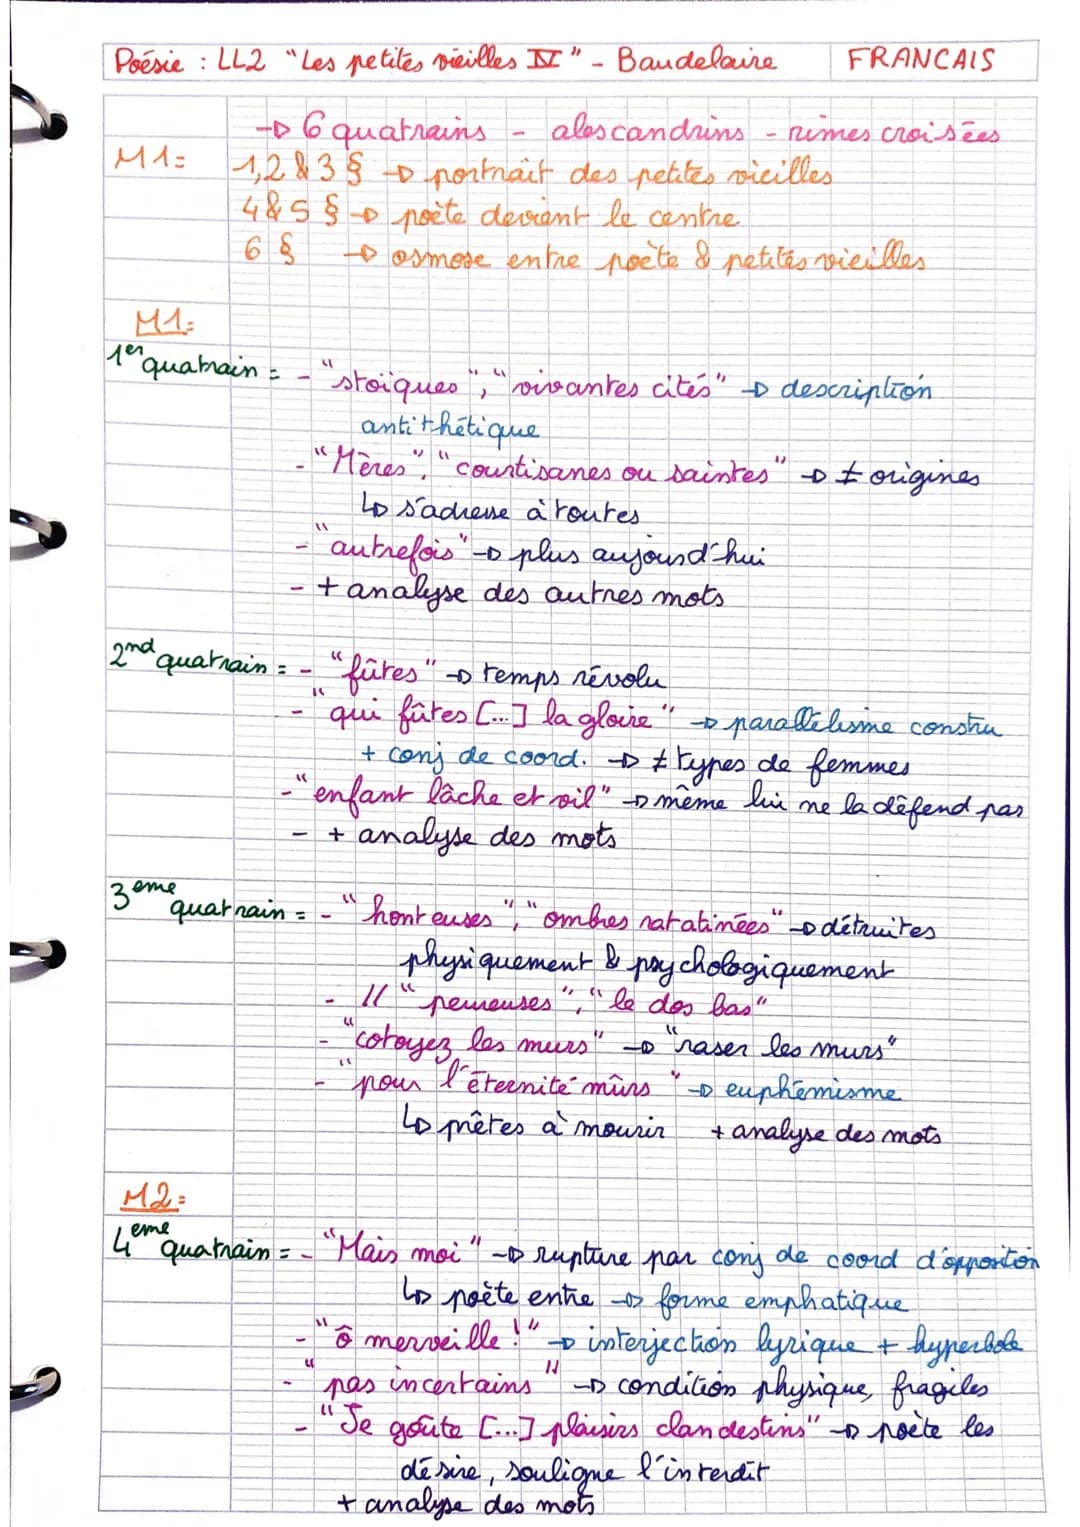 Poésie : LL2 "Les petites vieilles IV" - Baudelaire FRANCAIS
→ 6 quatrains - alescandrins - rimes croisées
M1= 1,2 & 3 § → portrait des petites vieilles
4 & 5 § → poète devient le centre
6 § → osmose entre poète & petites vieilles
M1:
1er quatrain = - "stoïques", "vivantes cités" → description
antithétique
- "Mères", "courtisanes ou saintes" → ≠ origines
↳ s'adresse à toutes
- "autrefois" → plus aujourd'hui
- + analyse des autres mots
2nd quatrain = - "fûtes" → temps révolu
- "qui fûtes [...] la gloire" → parallélisme constru
+ conj de coord. → ≠ types de femmes
- "enfant lâche et vil" → même lui ne la défend pas
- + analyse des mots
3eme quatrain = - "honteuses", "ombres ratatinées" → détruites
physiquement & psychologiquement
- // "peureuses", "le dos bas"
- "cotoyez les murs" → "raser les murs"
- "pour l'éternité mûrs" → euphémisme
↳ prêtes à mourir + analyse des mots
M2:
4eme quatrain = - "Mais moi" → rupture par conj de coord d'opposition
↳ poète entre → forme emphatique
- "ô merveille !" → interjection lyrique + hyperbole
- "pas incertains" → condition physique, fragiles
- "Je goûte [...] plaisirs clandestins" → poète les
désire, souligne l'interdit
+ analyse des mots